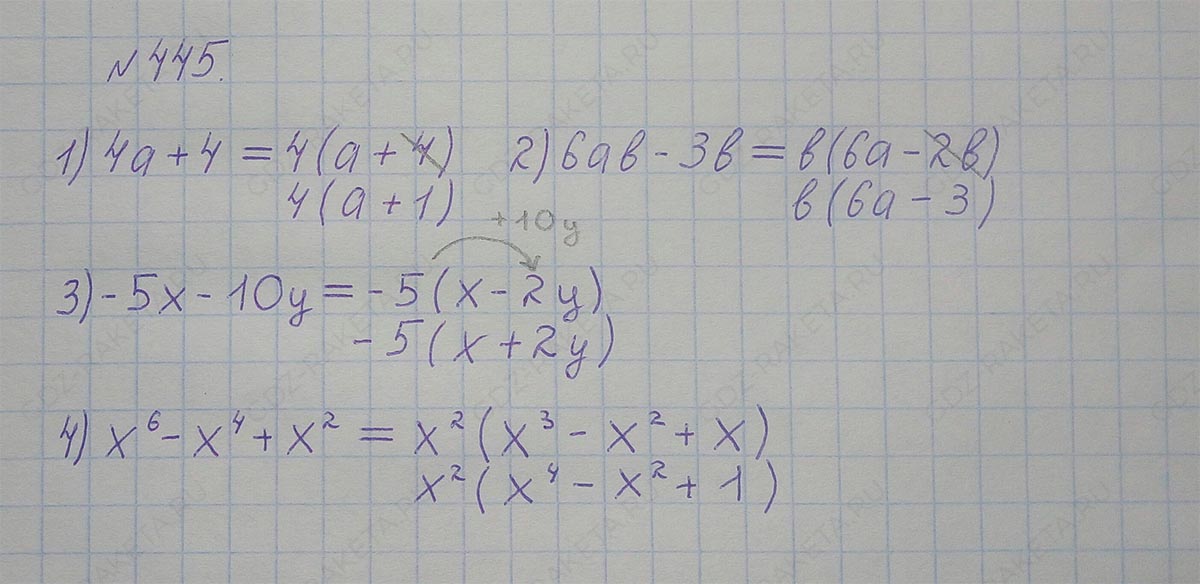 №445.
1) 4a + 4 = 4(a + 4) 2) 6aв - 3в = в(6a - 2в)
4(a + 1) в(6a - 3)
+10y
3) - 5x - 10y = -5(x - 2y)
-5(x + 2y)
4) x⁶ - x⁴ + x² = x²(x³ - x² + x)
x²(x⁴ - x² + 1)
GDZ-RAKETA.RU